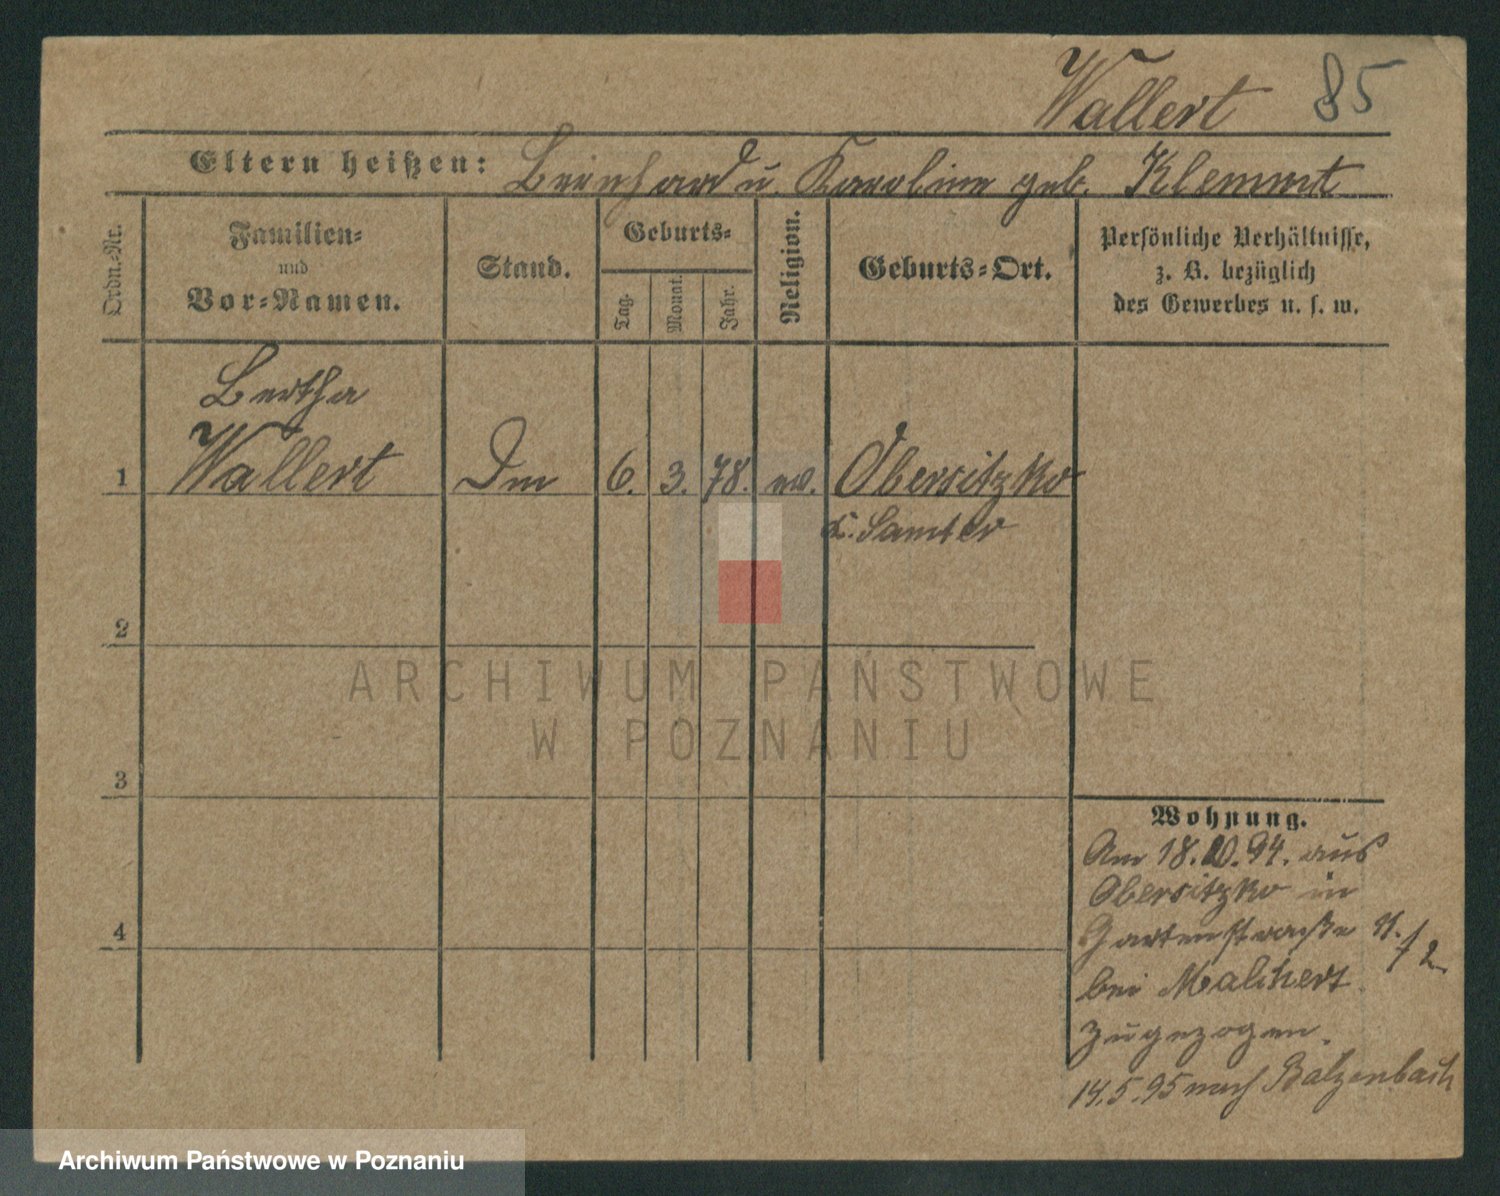 Wallert 85
Eltern heißen: Bernhard u. Karoline geb. Klemmt
Ordn.-Nr.
Familien-
und
Vor-Namen.
Stand.
Geburts-
Tag.
Monat.
Jahr.
Religion.
Geburts-Ort.
Persönliche Verhältnisse,
z. B. bezüglich
des Gewerbes u. s. w.
Bertha
1 Wallert 6. 3. 78. ev. Obersitzko
K. Samter
2
3
4
ARCHIWUM PAŃSTWOWE
W POZNANIU
Wohnung.
Am 18.10.94. aus
Obersitzko in
Gartenstraße 11./2
bei
zugezogen.
14.5.95 nach
Archiwum Państwowe w Poznaniu